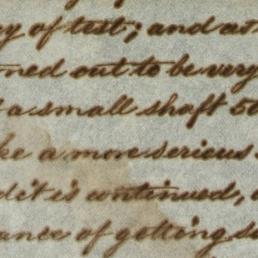 of test; and at
out to be very
a small shaft 50
a more serious
it is continued,
of getting